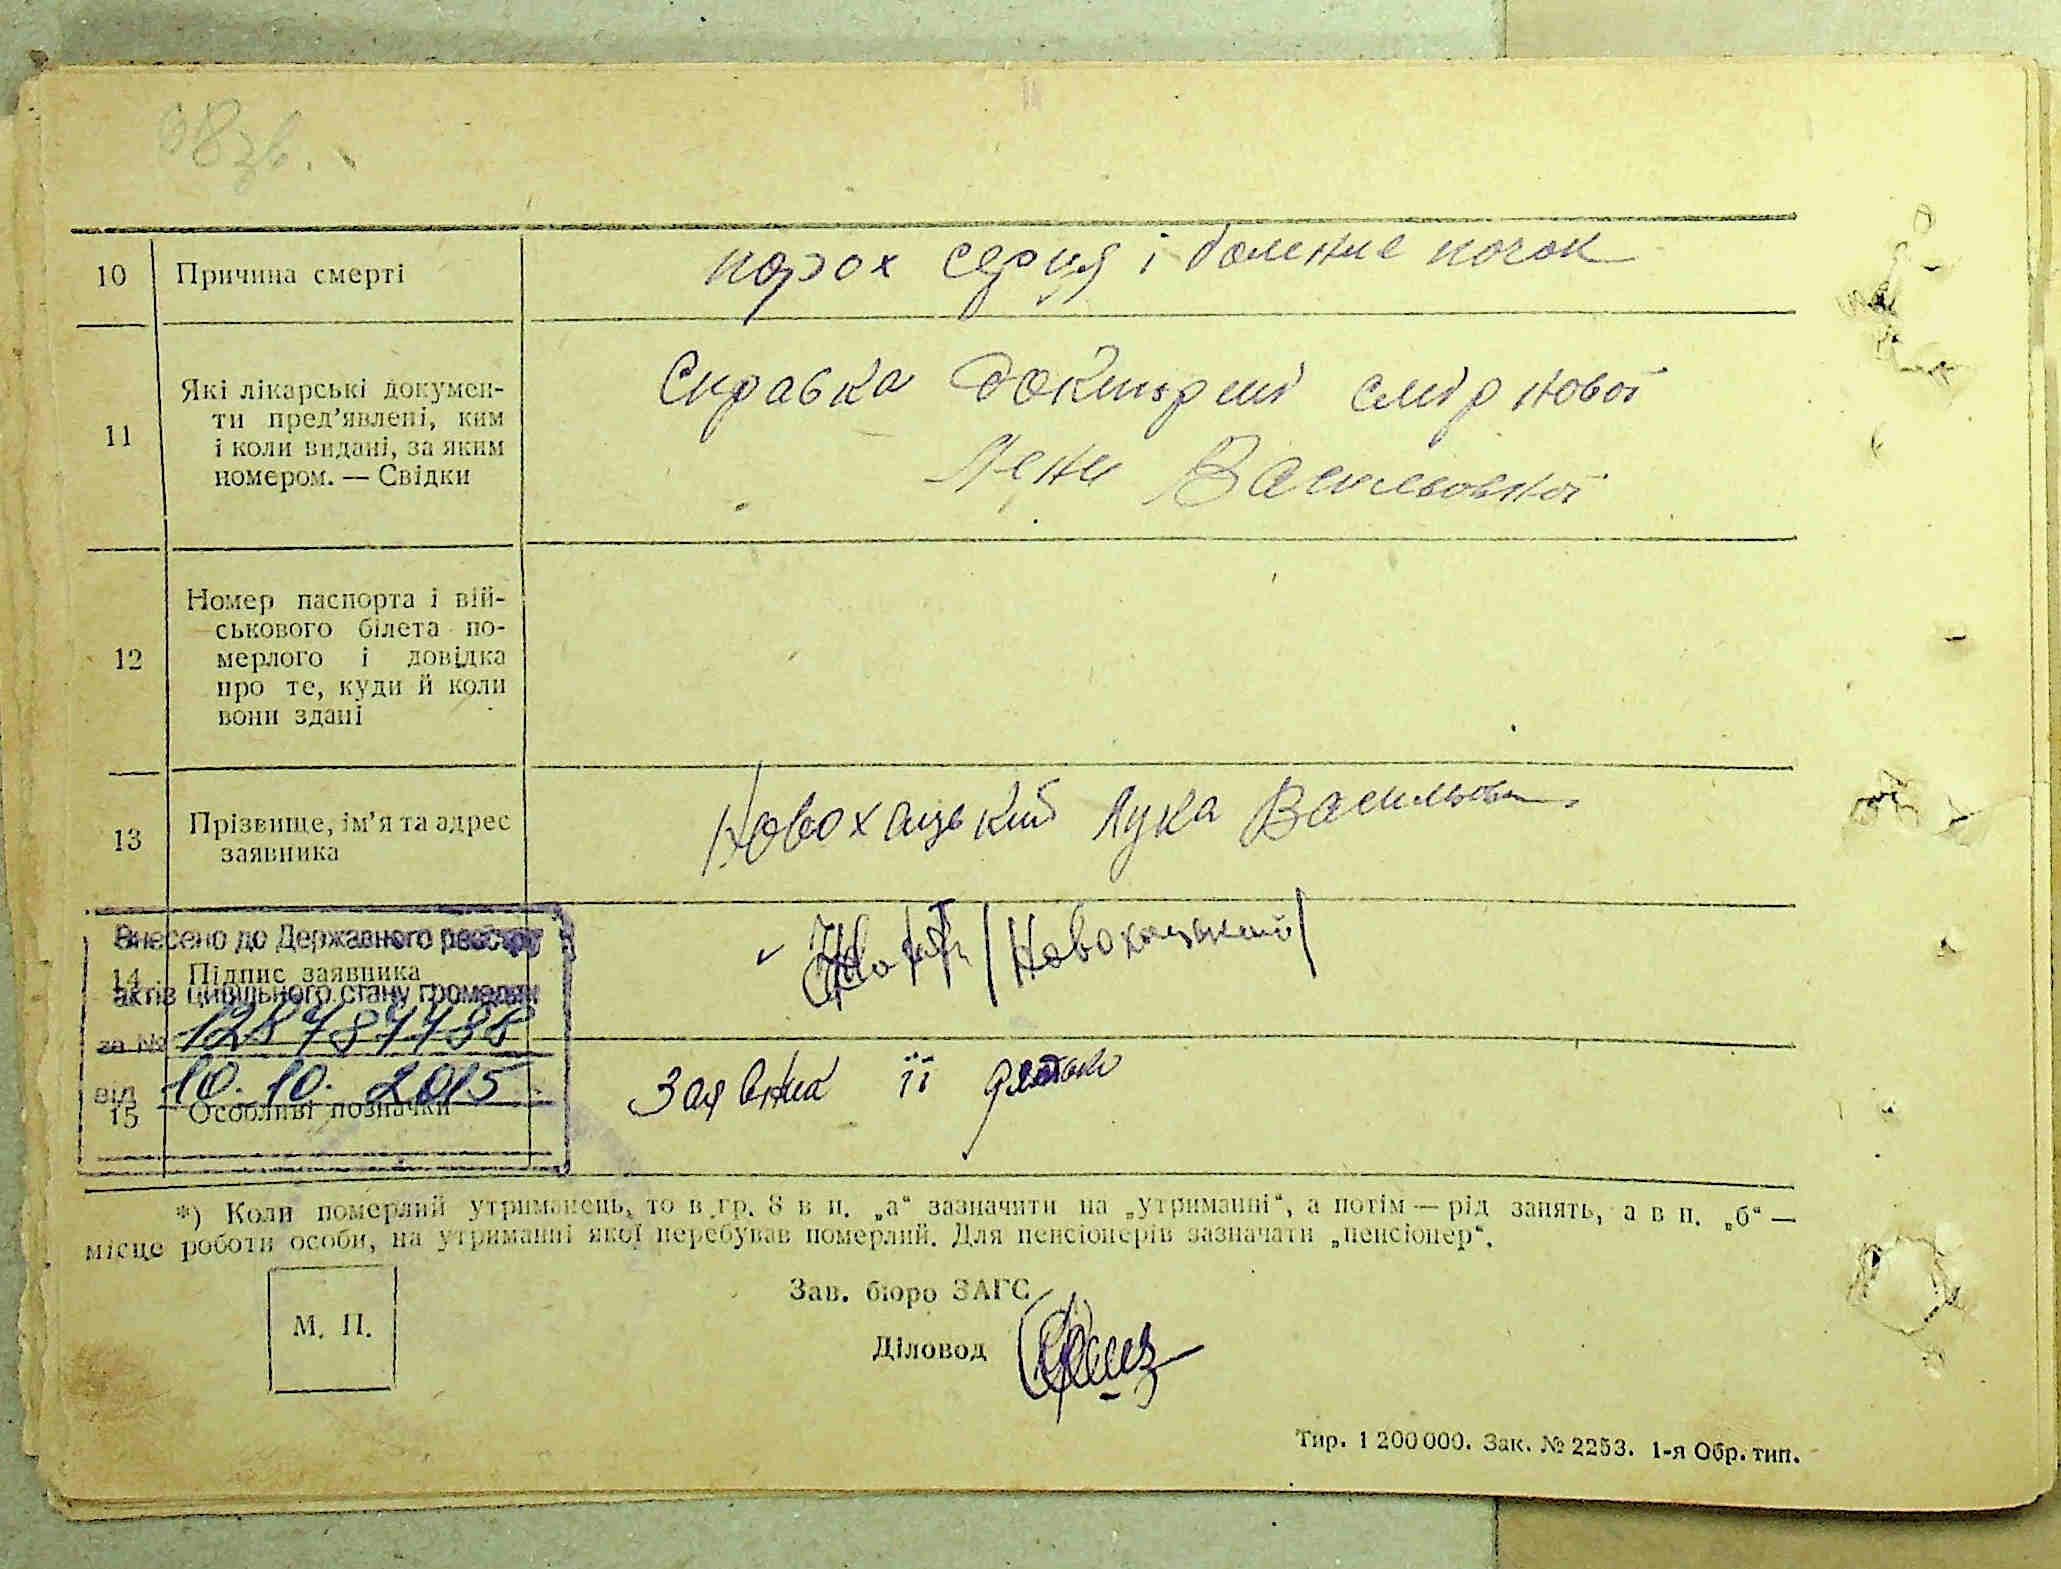 98 зв.
10 Причина смерті порох серця і болекне почок
11 Які лікарські докумен-
ти пред’явлені, ким
і коли видані, за яким
номером. — Свідки
Справка докторші смірнової
Лени Васильовної
12 Номер паспорта і вій-
ськового білета по-
мерлого і довідка
про те, куди й коли
вони здані
13 Прізвище, ім’я та адрес
заявника
Новохацький Лука Васильов
Внесено до Державного реєстру
14 Підпис заявника /Новохацький/
актів цивільного стану громадян
за № 128787488
від 10.10.2015
15 Особливі позначки Заявник її
*) Коли померлий утриманець, то в гр. 8 в п. „а“ зазначити на „утриманні“, а потім — рід занять, а в п. „б“ —
місце роботи особи, на утриманні якої перебував померлий. Для пенсіонерів зазначати „пенсіонер“.
М. П.
Зав. бюро ЗАГС
Діловод
Тир. 1 200 000. Зак. № 2253. 1-я Обр. тип.